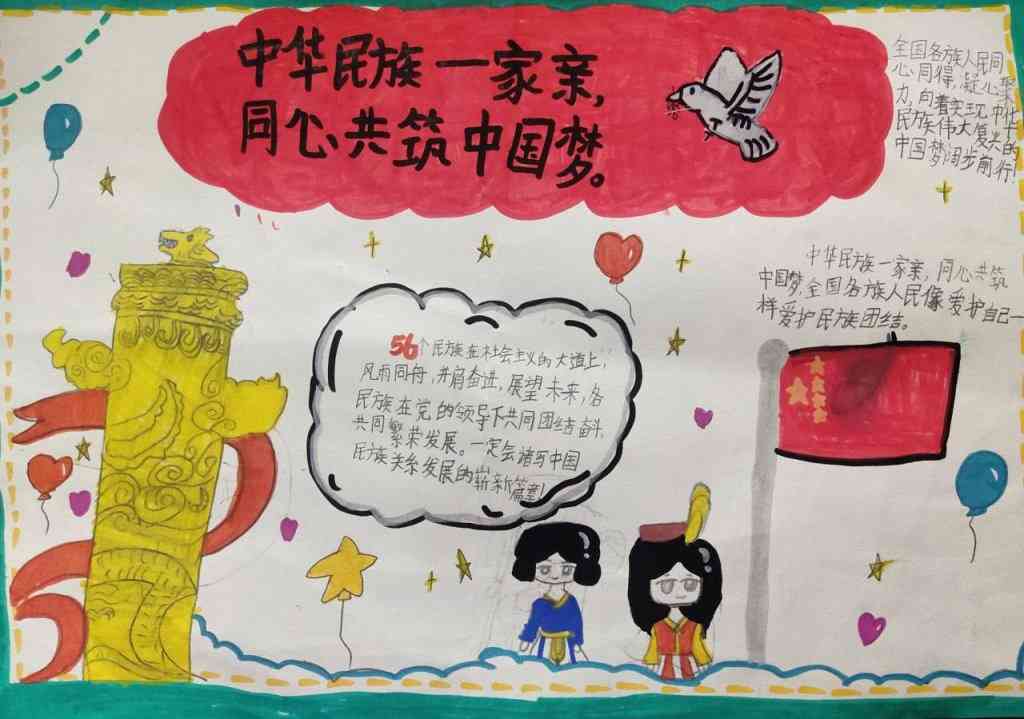 中华民族一家亲,
同心共筑中国梦。
全国各族人民同
心同得,凝心聚
力,向着实现中华
民族伟大复兴的
中国梦阔步前行!
中华民族一家亲,同心共筑
中国梦,全国各族人民像爱护自己一
样爱护民族团结。
56个民族在社会主义的大道上,
风雨同舟,并肩奋进,展望未来,各
民族在党的领导下共同团结奋斗,
共同繁荣发展。一定会谱写中国
民族关系发展的崭新篇章!